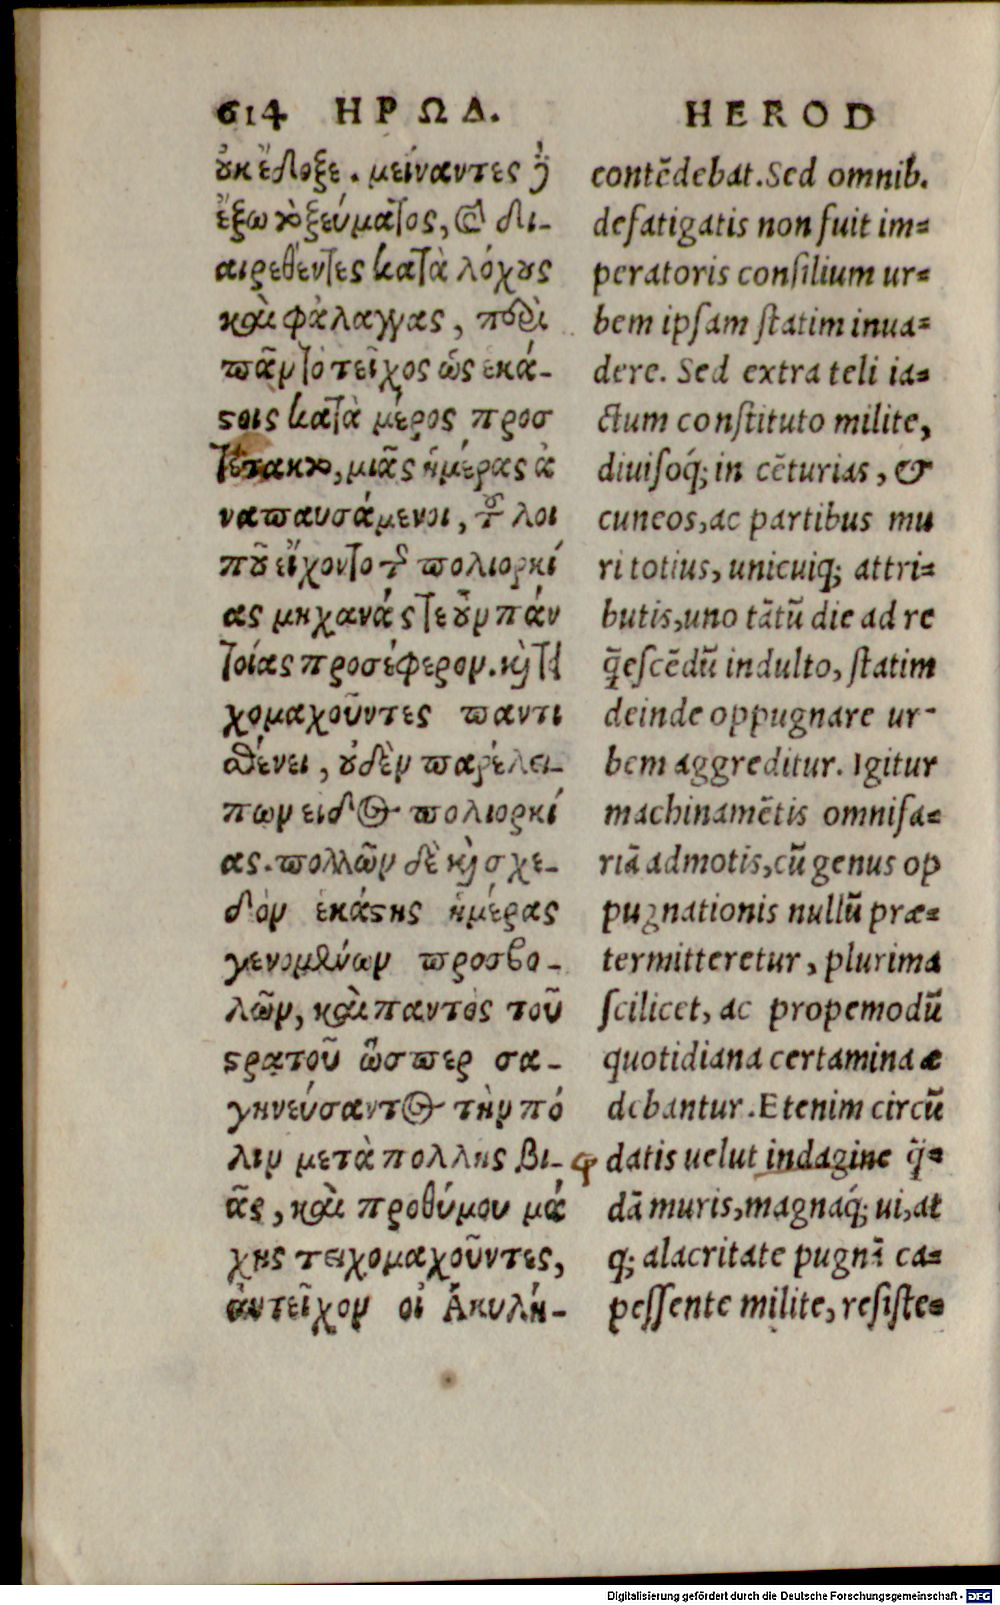 614 ΗΡΩΔ.
οὐκ ἔδοξε. μείναντες δὲ
ἔξω τοξεύματος, καὶ δι-
αιρεθέντες κατὰ λόχους
καὶ φάλαγγας, περὶ
πᾶν τὸ τεῖχος ὡς ἑκά-
στοις κατὰ μέρος προσ
τέτακτο, μιᾶς ἡμέρας ἀ
ναπαυσάμενοι, τοῦ λοι
ποῦ εἴχοντο τῆς πολιορκί
ας μηχανάς τε οὖν παν
τοίας προσέφερον. καὶ τει
χομαχοῦντες παντὶ
σθένει, οὐδὲν παρέλει-
πων εἶδος πολιορκί
ας. πολλῶν δὲ καὶ σχε-
δὸν ἑκάστης ἡμέρας
γενομένων προσβο-
λῶν, καὶ παντὸς τοῦ
στρατοῦ ὥσπερ σα-
γηνεύσαντος τὴν πό
λιν μετὰ πολλῆς βι-
ᾶς, καὶ προθύμου μά
χης τειχομαχοῦντες,
ἀντεῖχον οἱ Ἀκυλή-
HEROD
contēdebat. Sed omnib.
defatigatis non fuit im=
peratoris consilium ur=
bem ipsam statim inua=
dere. Sed extra teli ia=
ctum constituto milite,
diuisoq́; in cēturias, &
cuneos, ac partibus mu
ri totius, unicuiq; attri=
butis, uno tātū die ad re
q̄escēdū indulto, statim
deinde oppugnare ur-
bem aggreditur. Igitur
machinamētis omnifa=
riā admotis, cū genus op
pugnationis nullū præ=
termitteretur, plurima
scilicet, ac propemodū
quotidiana certamina æ
debantur. Etenim circū
datis uelut indagine q̄=
dā muris, magnaq́; ui, at
q; alacritate pugnā ca=
pessente milite, resiste=
Digitalisierung gefördert durch die Deutsche Forschungsgemeinschaft - DFG